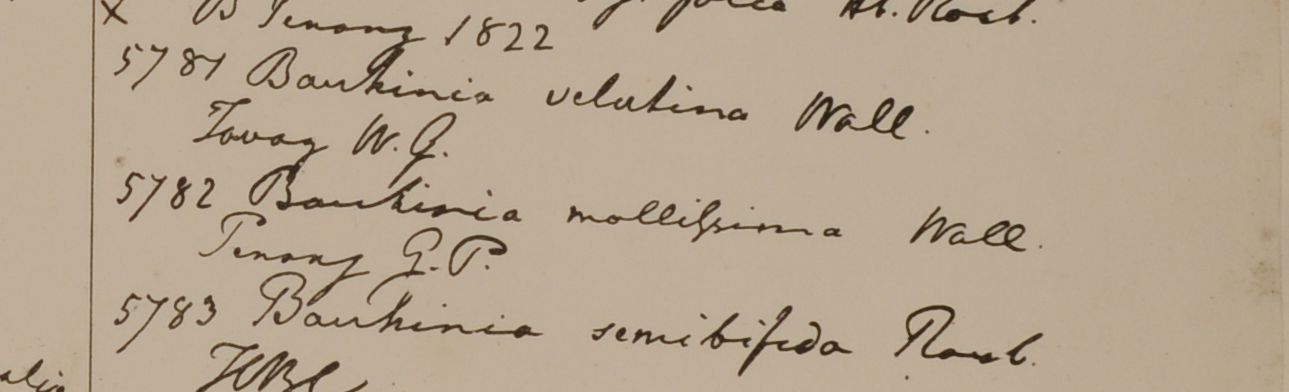 × B Penang 1822
Hb. Roxb.
5781 Bauhinia velutina Wall.
Tavoy W. G.
5782 Bauhinia mollissima Wall.
Penang G. P.
5783 Bauhinia semibifida Roxb.
HBC